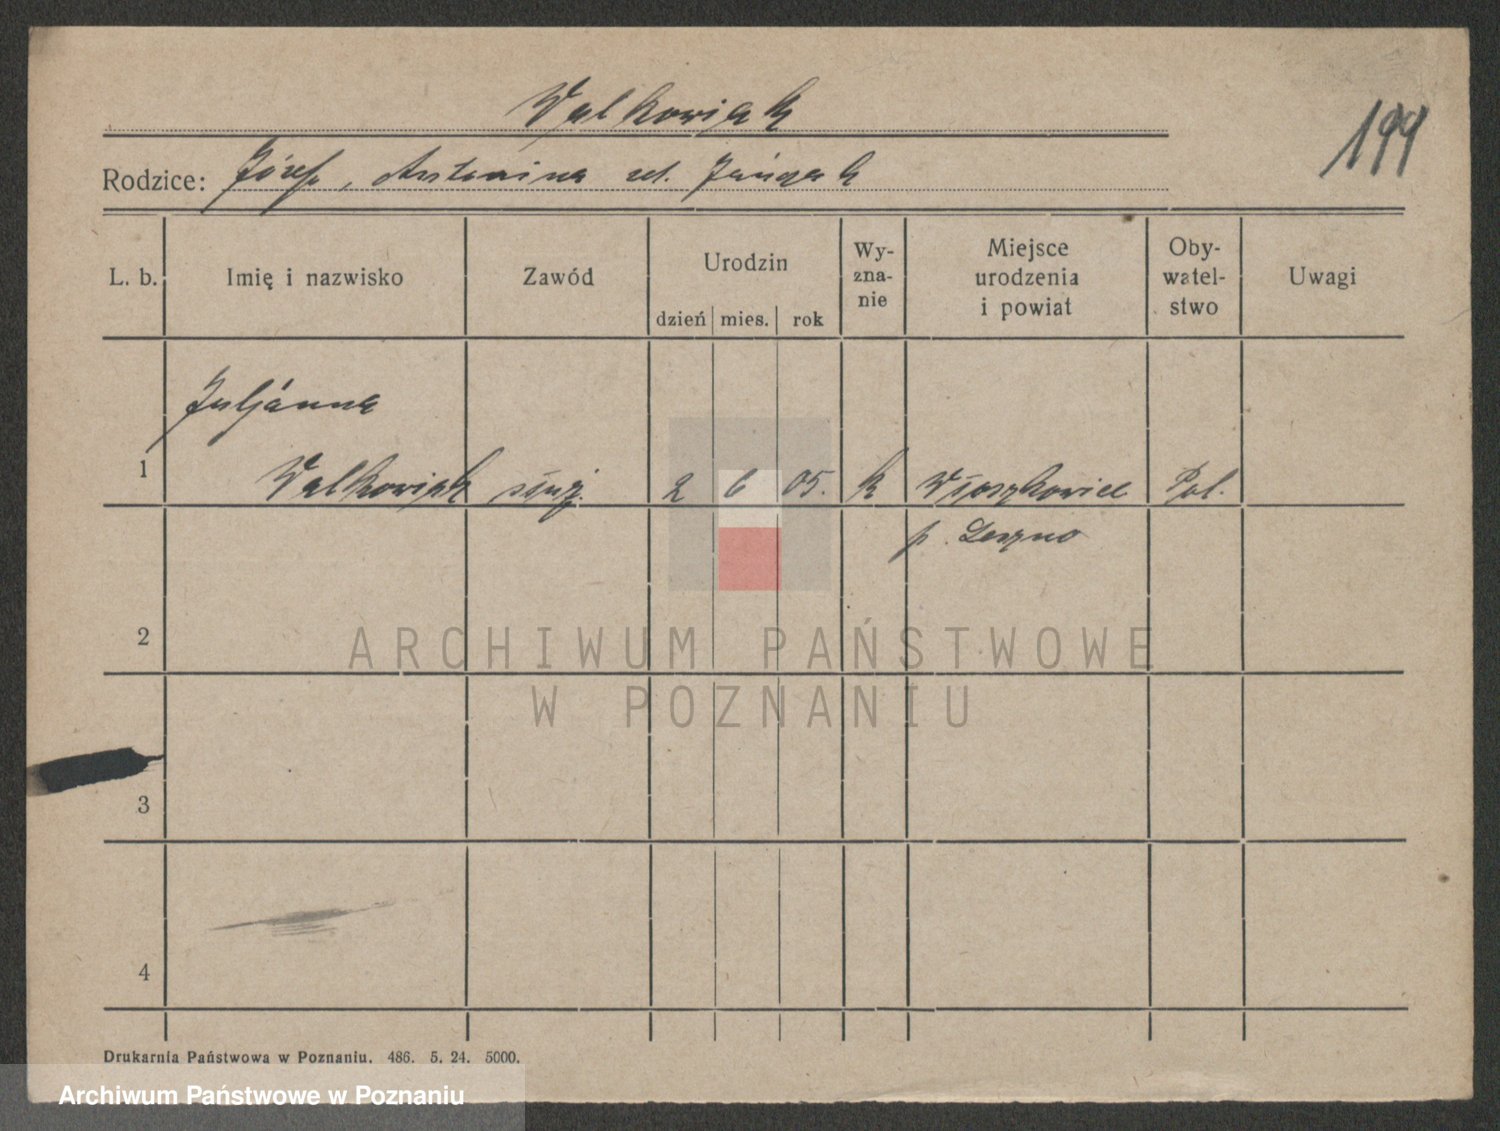 Walkowiak
199
Rodzice: Józef, Antonina zd.
L. b. Imię i nazwisko Zawód Urodzin dzień mies. rok Wy-zna-nie Miejsce urodzenia i powiat Oby-watel-stwo Uwagi
Juljanna
1 Walkowiak służ. 2 6 05. k Włoszkowice Pol.
p. Leszno
2
ARCHIWUM PAŃSTWOWE
W POZNANIU
3
4
Drukarnia Państwowa w Poznaniu. 486. 5. 24. 5000.
Archiwum Państwowe w Poznaniu